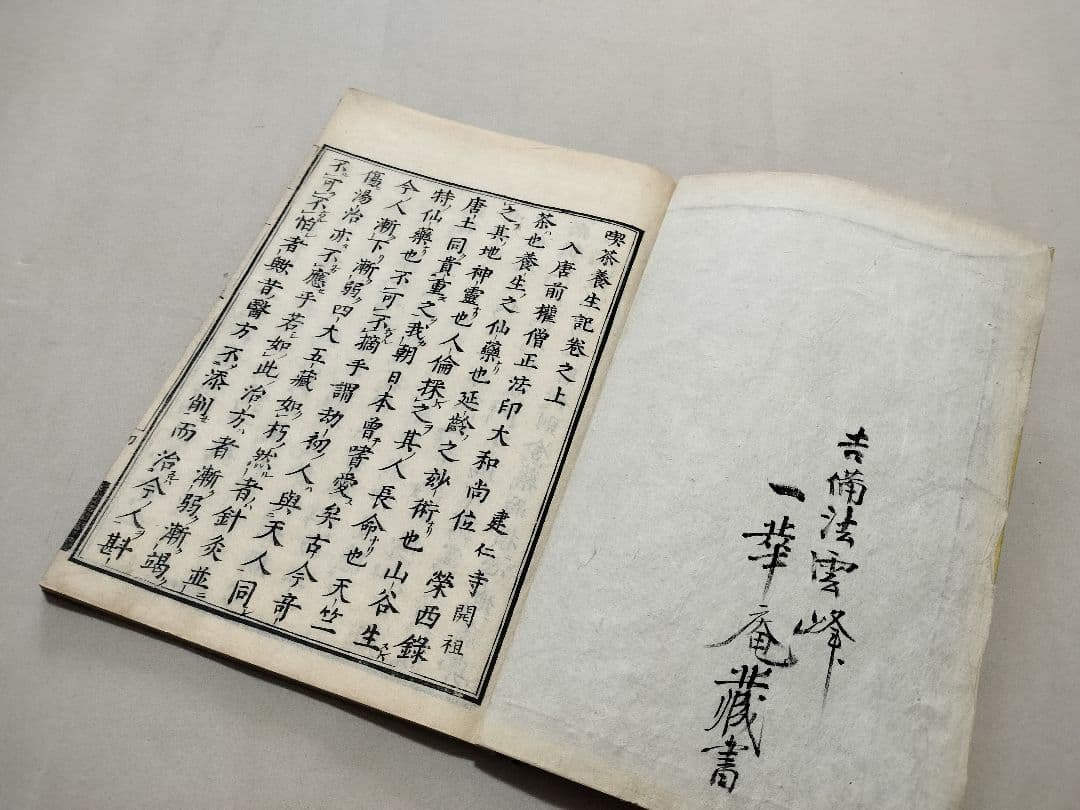 吉備法雲峰
一華庵藏書
喫茶養生記卷之上
入唐前權僧正法印大和尚位
建仁寺開祖
榮西錄
茶也養生之仙藥也延齡之妙術也山谷生
之其地神靈也人倫採之其人長命也天竺
唐土同貴重之我朝日本曾嗜愛矣古今奇
特仙藥也不可不摘乎謂劫初人與天人同
今人漸下漸弱四大五藏如朽然者針灸並
傷湯治亦不應乎若如此治方者漸弱漸竭
不可不怕者歟昔醫方不添削而治今人斟